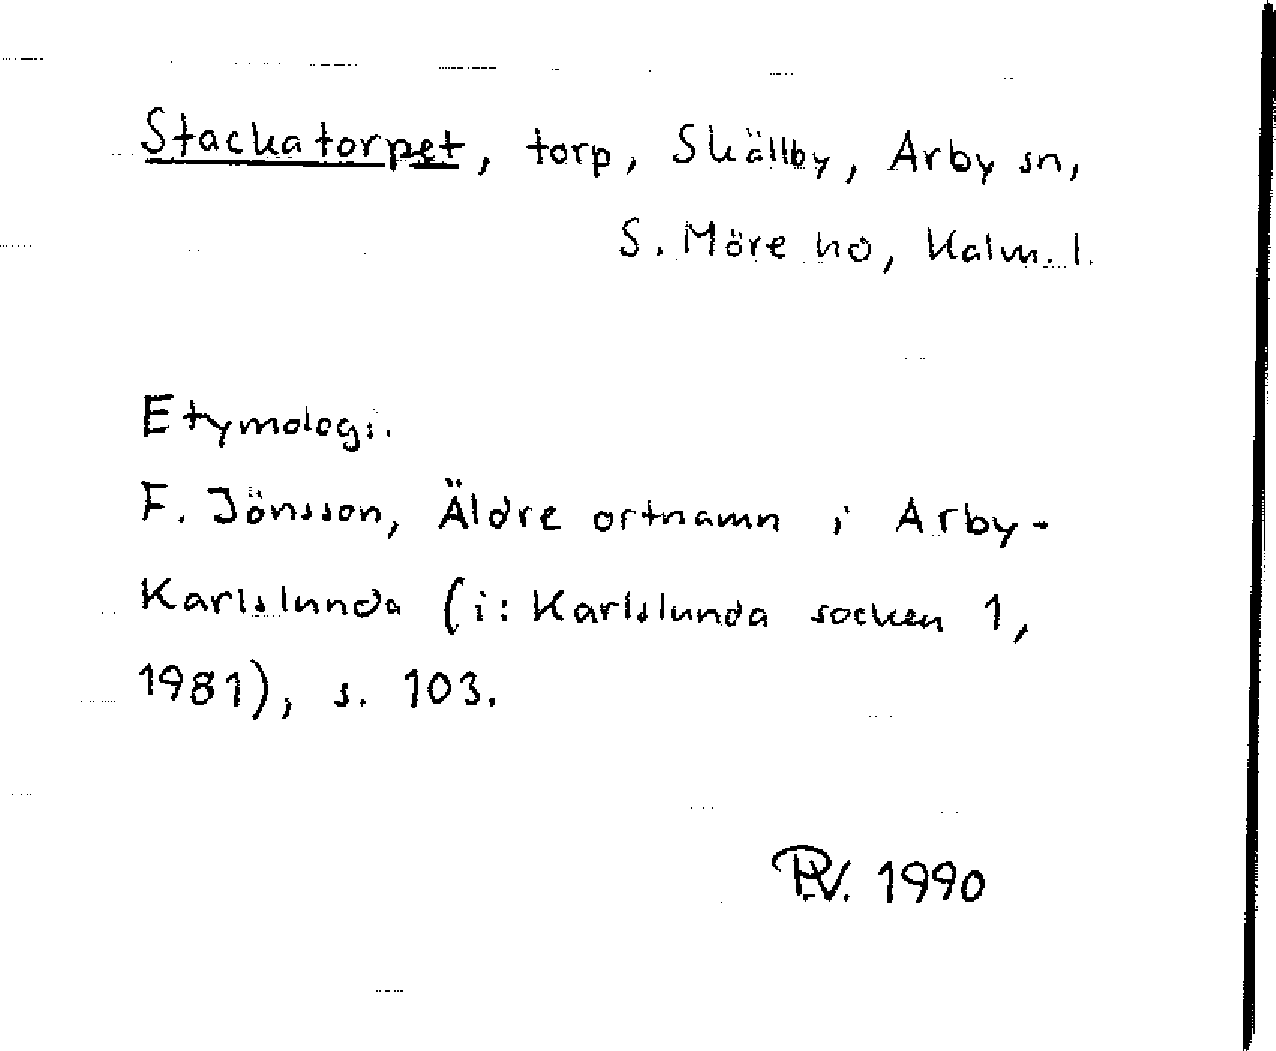 Stackatorpet, torp, Skällby, Arby sn,
S. Möre hd, Kalm. l.
Etymologi.
F. Jönsson, Äldre ortnamn i Arby-
Karlslunda (i: Karlslunda socken 1,
1981), s. 103.
P.V. 1990